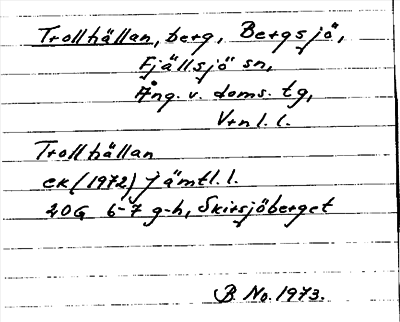 Trollhällan, berg, Bergsjö,
Fjällsjö sn,
Ång. v. doms. tg,
Vrnl. l.
Trollhällan
ek (1972) Jämtl. l.
20G 6-7 g-h, Skirsjöberget
B. No. 1973.